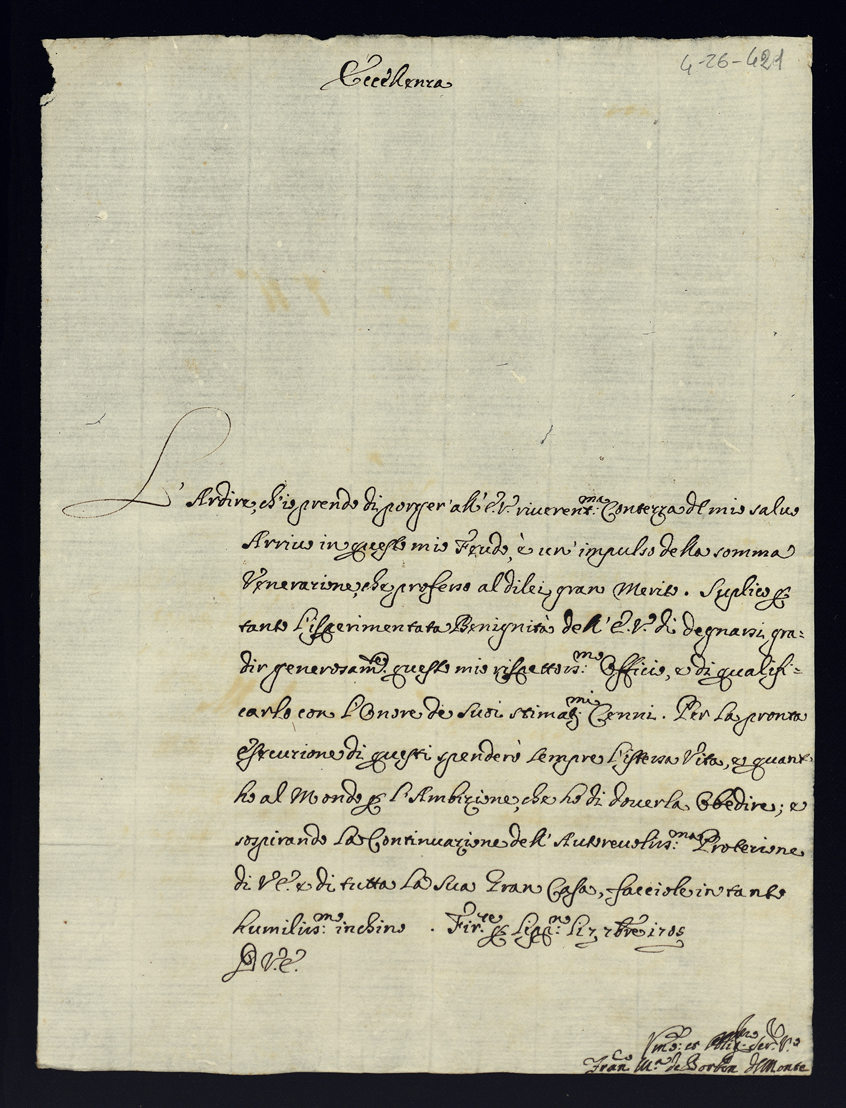 4-26-421
Ecc.ell.enza
L'Ardire, ch'io prendo di porger' all' E. V. riverent.ma Contezza del mio salvo
Arrivo in questo mio Feudo, è un' impulso della somma
Venerazione, che professo al di lei gran Merito. Suplico p
tanto l'isperimentata Benignità dell' E. V. di degnarsi, gra=
dir generosam.te questo mio rispettoss.mo Officio, e di qualifi=
carlo con l'Onore de suoi stimat.mi Cenni. Per la pronta
esecuzione di questi spenderò sempre l'istessa Vita, e quant
ho al Mondo p l'Ambizione, che ho di doverla Obedire; e
sospirando la Continuazione dell' Autorevoliss.ma Protezione
di V. E. e di tutta la sua Gran Casa, facciole in tanto
humiliss.mo inchino. Fir.ze p 7bre 1705
D V. E.
Vmo: et Oblig. Ser.re V.o
Fran.co M.a de Borbon del Monte